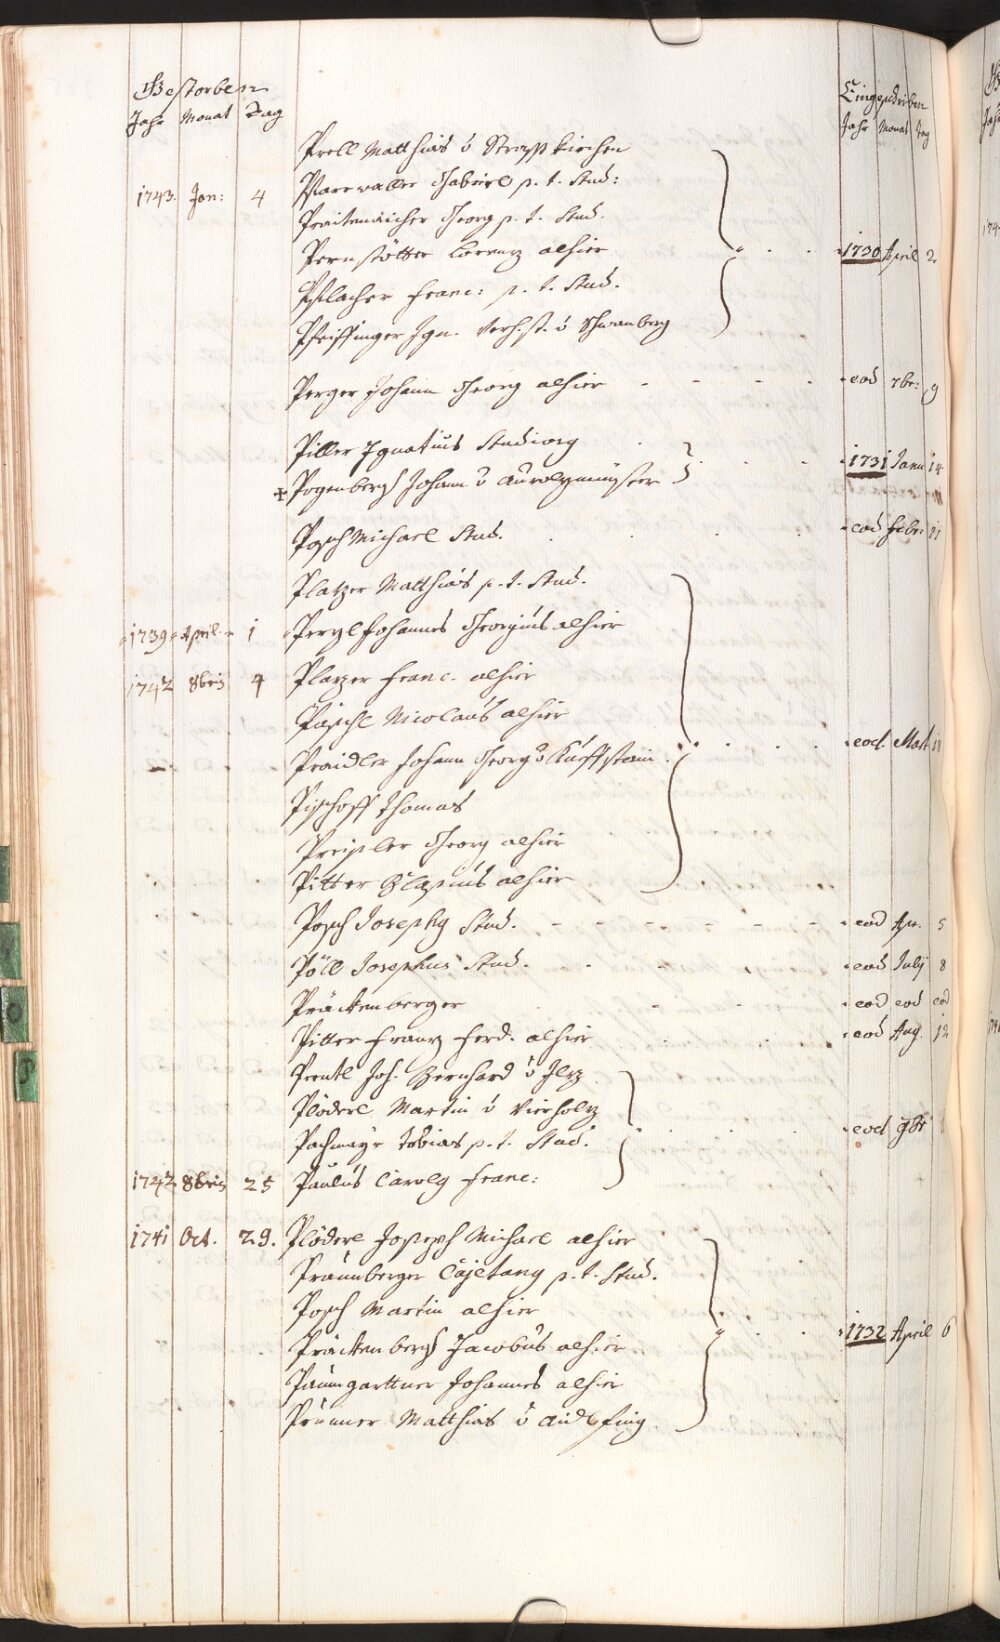 Gestorben
Jahr Monat Tag
Eingeschriben
Jahr Monat Tag
Prell Matthias v Strasskirchen
1743. Jan: 4 Pfarrwaller Gabriel p. t. Stud:
Praitenaicher Georg p. t. Stud.
Pernstötter Lorenz alhier 1730 April 2
Pflacher Franc: p. t. Stud.
Pfeiffinger Ign. v Schwanberg
Perger Johann Georg alhier - - - - eod 7br: 9
Piller Ignatius Studiosg
Pogenbergh Johann v 1731 Janu 14
Posch Michael Stud. eod Febr: 11
Platzer Matthias p. t. Stud.
1739 April 1 Perzl Johannes Georgius alhier
1742 8bris 4 Plazer Franc. alhier
Päschl Nicolaus alhier
Praidler Johann Georg v Kuffstain eod. Mart
Pischoff Thomas
Georg alhier
Pitter Blasius alhier
Posch Josephg Stud. - - - - - - - eod Apr. 5
Pöll Josephus Stud. - - eod July 8
Präckenberger - - eod eod eod
Pitter Franz Ferd. alhier eod Aug. 12
Prentl Joh. Bernhard v Ilz
Plöderl Martin v Vierholz
Pachmayr Tobias p. t. Stud. eod 9br
1742 8bris 25 Paulus Carolg Franc:
1741 Oct. 29. Plöderl Joseph Michael alhier
Praunberger Cajetang p. t. Stud.
Posch Martin alhier
Präckenbergh Jacobus alhier 1732 April 6
Paumgarttner Johannes alhier
Prunner Matthias v Aidlfing